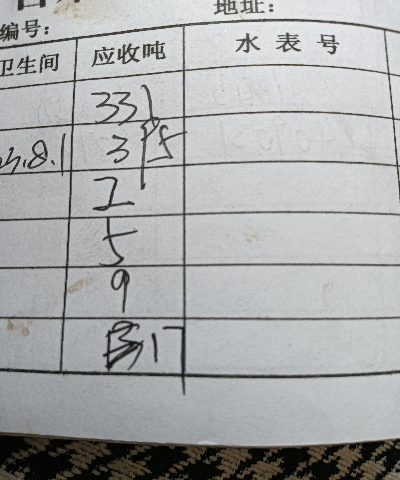 编号： 地址：
卫生间 应收吨 水表号
33
3.8.1 3 35
2
5
9
17